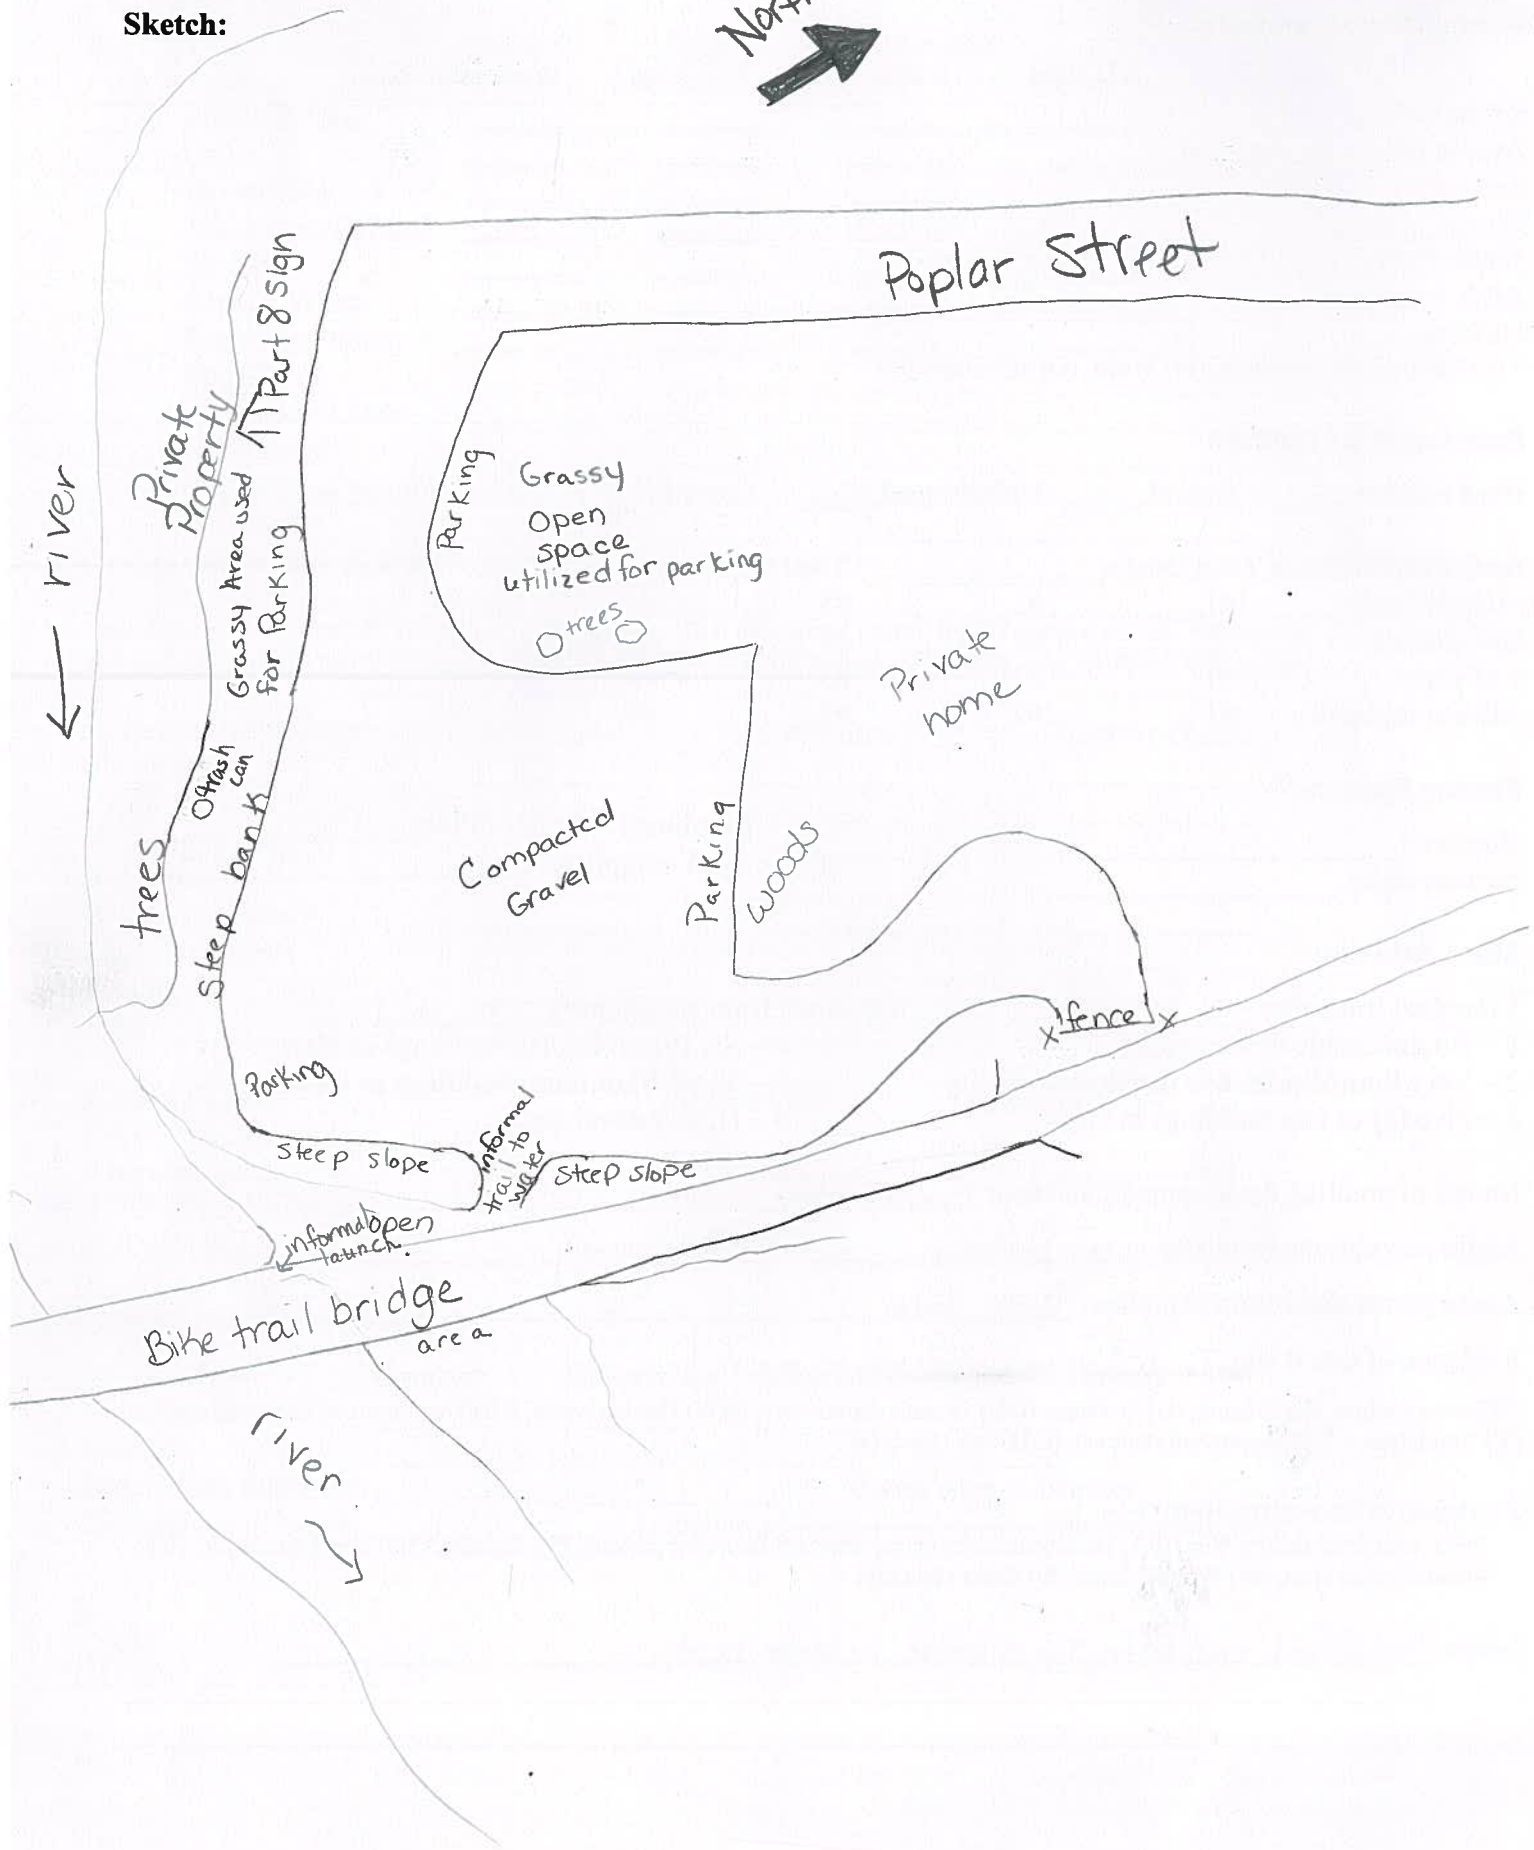 Sketch:
North
Poplar Street
Part 8 sign
Private
Property
river
Grassy Area used
for Parking
Parking
Grassy
Open
space
utilized for parking
trees
Private
home
trash
can
trees
Steep bank
Compacted
Gravel
Parking
Woods
fence
x
x
Parking
Steep slope
informal
trail to
water
Steep slope
informal open
launch.
Bike trail bridge
area
river